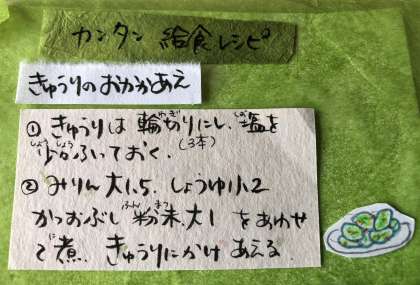 カンタン 給食レシピ
きゅうりのおかかあえ
① きゅうりは 輪切りにし、塩を
少々ふっておく。(3本)
② みりん大1.5、しょうゆ小2
かつおぶし 粉末大1 をあわせ
て煮、きゅうりにかけ あえる。